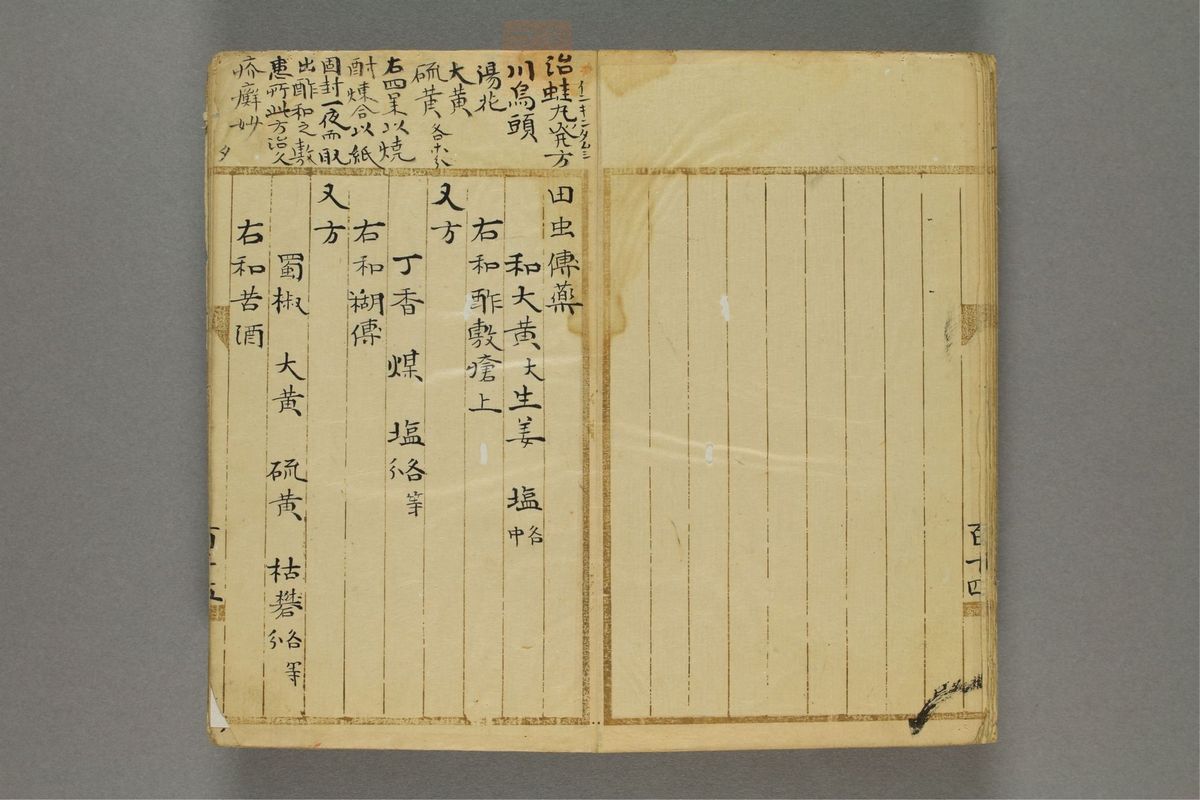 百十四
治蛙九発方
川烏頭
湯花
大黄
硫黄 各等分
右四味以焼
酎煉合以紙
固封一夜而取
出酢和之敷
患所此方治久
疥癬妙
田虫傅薬
和大黄 大 生姜 塩 各中
右和酢敷瘡上
又方
丁香 煤 塩 各等分
右和糊傅
又方
蜀椒 大黄 硫黄 枯礬 各等分
右和苦酒
百十五